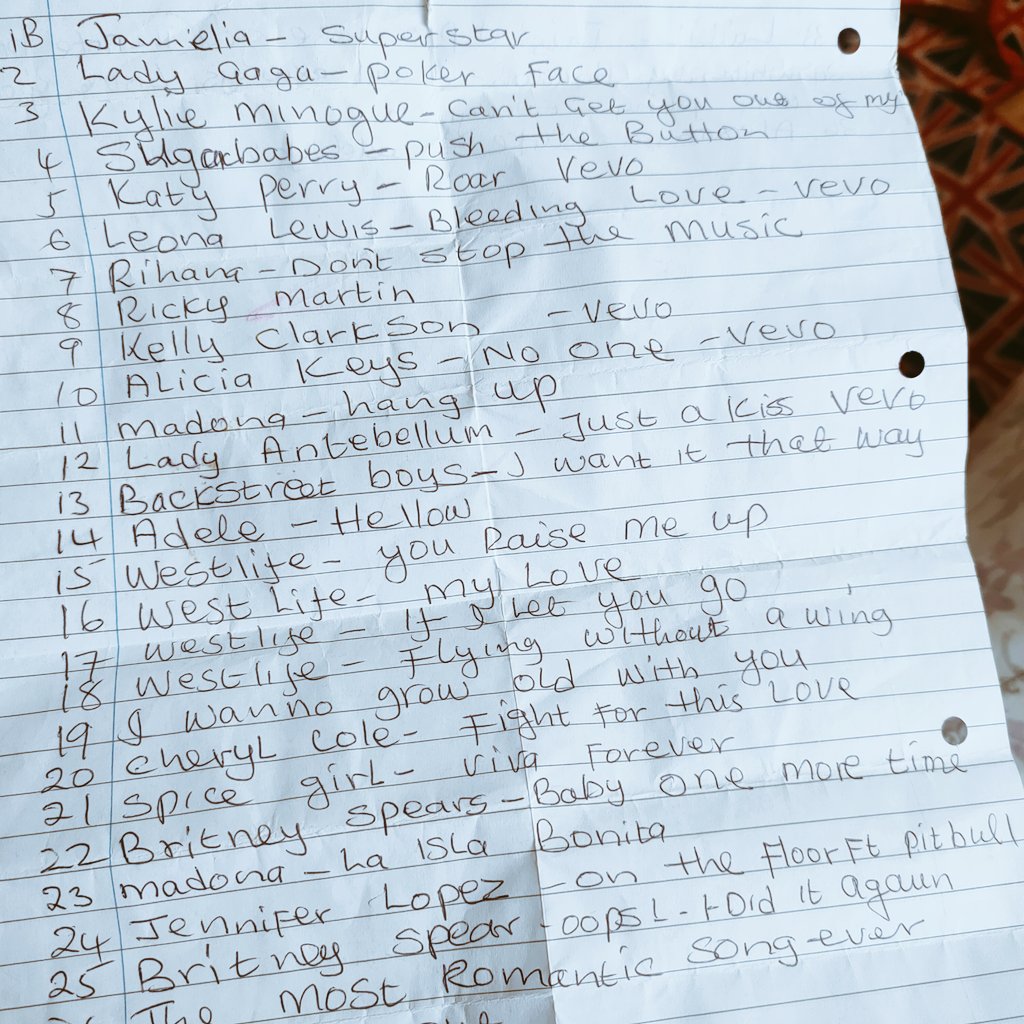 1B Jamielia - Superstar
2 Lady Gaga - Poker Face
3 Kylie Minogue - Can't Get you out of my
4 Sugarbabes - push the Button
5 Katy Perry - Roar Vevo
6 Leona Lewis - Bleeding Love - vevo
7 Rihana - Don't stop the music
8 Ricky martin
9 Kelly Clarkson - vevo
10 Alicia Keys - No one - vevo
11 madona - hang up
12 Lady Antebellum - Just a kiss vevo
13 Backstreet boys - I want it that way
14 Adele - Hellow
15 Westlife - you Raise me up
16 West Life - my Love
17 westlife - If I Let you go
18 westlife - Flying without a wing
19 I wanno grow old with you
20 cheryl cole - Fight For this Love
21 spice girl - viva Forever
22 Britney spears - Baby one more time
23 madona - La Isla Bonita
24 Jennifer Lopez - on the Floor Ft pitbull
25 Britney spear - oops ! - I Did it agaun
The most Romantic song-ever